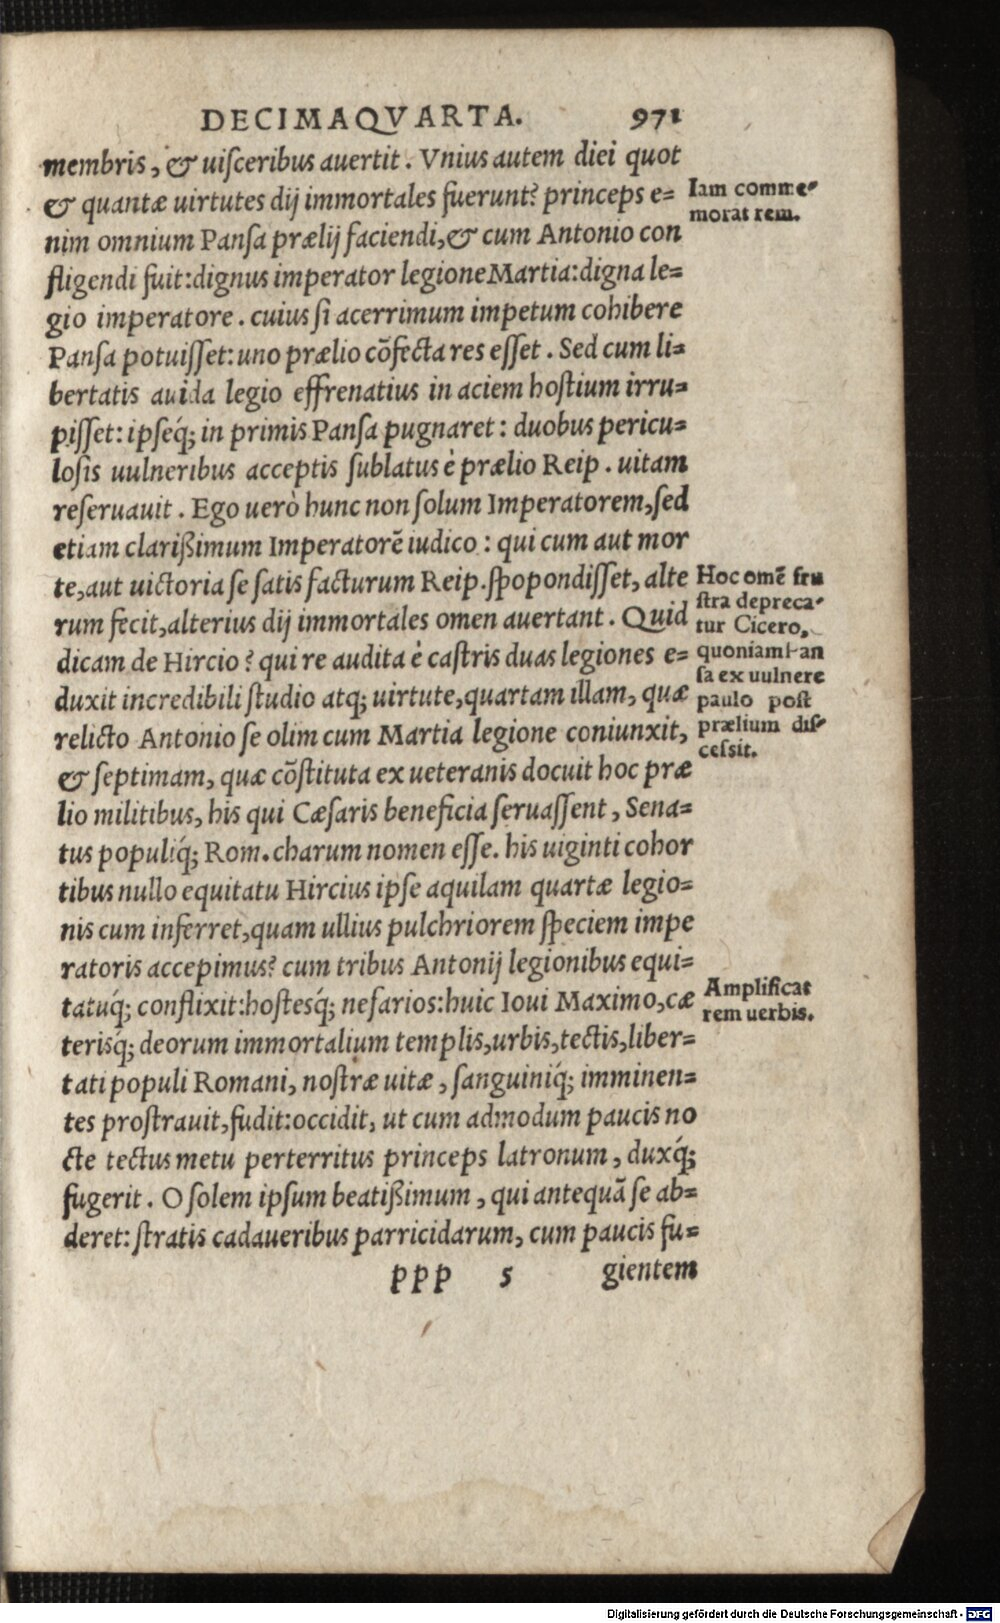 DECIMAQVARTA. 971
membris, & uisceribus auertit. Vnius autem diei quot
& quantæ uirtutes dij immortales fuerunt? princeps e=
nim omnium Pansa prælij faciendi, & cum Antonio con
fligendi fuit: dignus imperator legione Martia: digna le=
gio imperatore. cuius si acerrimum impetum cohibere
Pansa potuisset: uno prælio cõfecta res esset. Sed cum li=
bertatis auida legio effrenatius in aciem hostium irru=
pisset: ipseq́; in primis Pansa pugnaret: duobus pericu=
losis uulneribus acceptis sublatus è prælio Reip. uitam
reseruauit. Ego uerò hunc non solum Imperatorem, sed
etiam clarißimum Imperatorẽ iudico: qui cum aut mor
te, aut uictoria se satis facturum Reip. spopondisset, alte
rum fecit, alterius dij immortales omen auertant. Quid
dicam de Hircio? qui re audita è castris duas legiones e=
duxit incredibili studio atq; uirtute, quartam illam, quæ
relicto Antonio se olim cum Martia legione coniunxit,
& septimam, quæ cõstituta ex ueteranis docuit hoc præ
lio militibus, his qui Cæsaris beneficia seruassent, Sena=
tus populiq́; Rom. charum nomen esse. his uiginti cohor
tibus nullo equitatu Hircius ipse aquilam quartæ legio=
nis cum inferret, quam ullius pulchriorem speciem impe
ratoris accepimus? cum tribus Antonij legionibus equi=
tatuq́; conflixit: hostesq́; nefarios: huic Ioui Maximo, cæ
terisq́; deorum immortalium templis, urbis, tectis, liber=
tati populi Romani, nostræ uitæ, sanguiniq́; imminen=
tes prostrauit, fudit: occidit, ut cum admodum paucis no
cte tectus metu perterritus princeps latronum, duxq́;
fugerit. O solem ipsum beatißimum, qui antequã se ab=
deret: stratis cadaueribus parricidarum, cum paucis fu=
ppp 5 gientem
Iam comme-
morat rem.
Hoc omẽ fru
stra depreca-
tur Cicero,
quoniam Pan
sa ex uulnere
paulo post
prælium dis-
cessit.
Amplificat
rem uerbis.
Digitalisierung gefördert durch die Deutsche Forschungsgemeinschaft - DFG